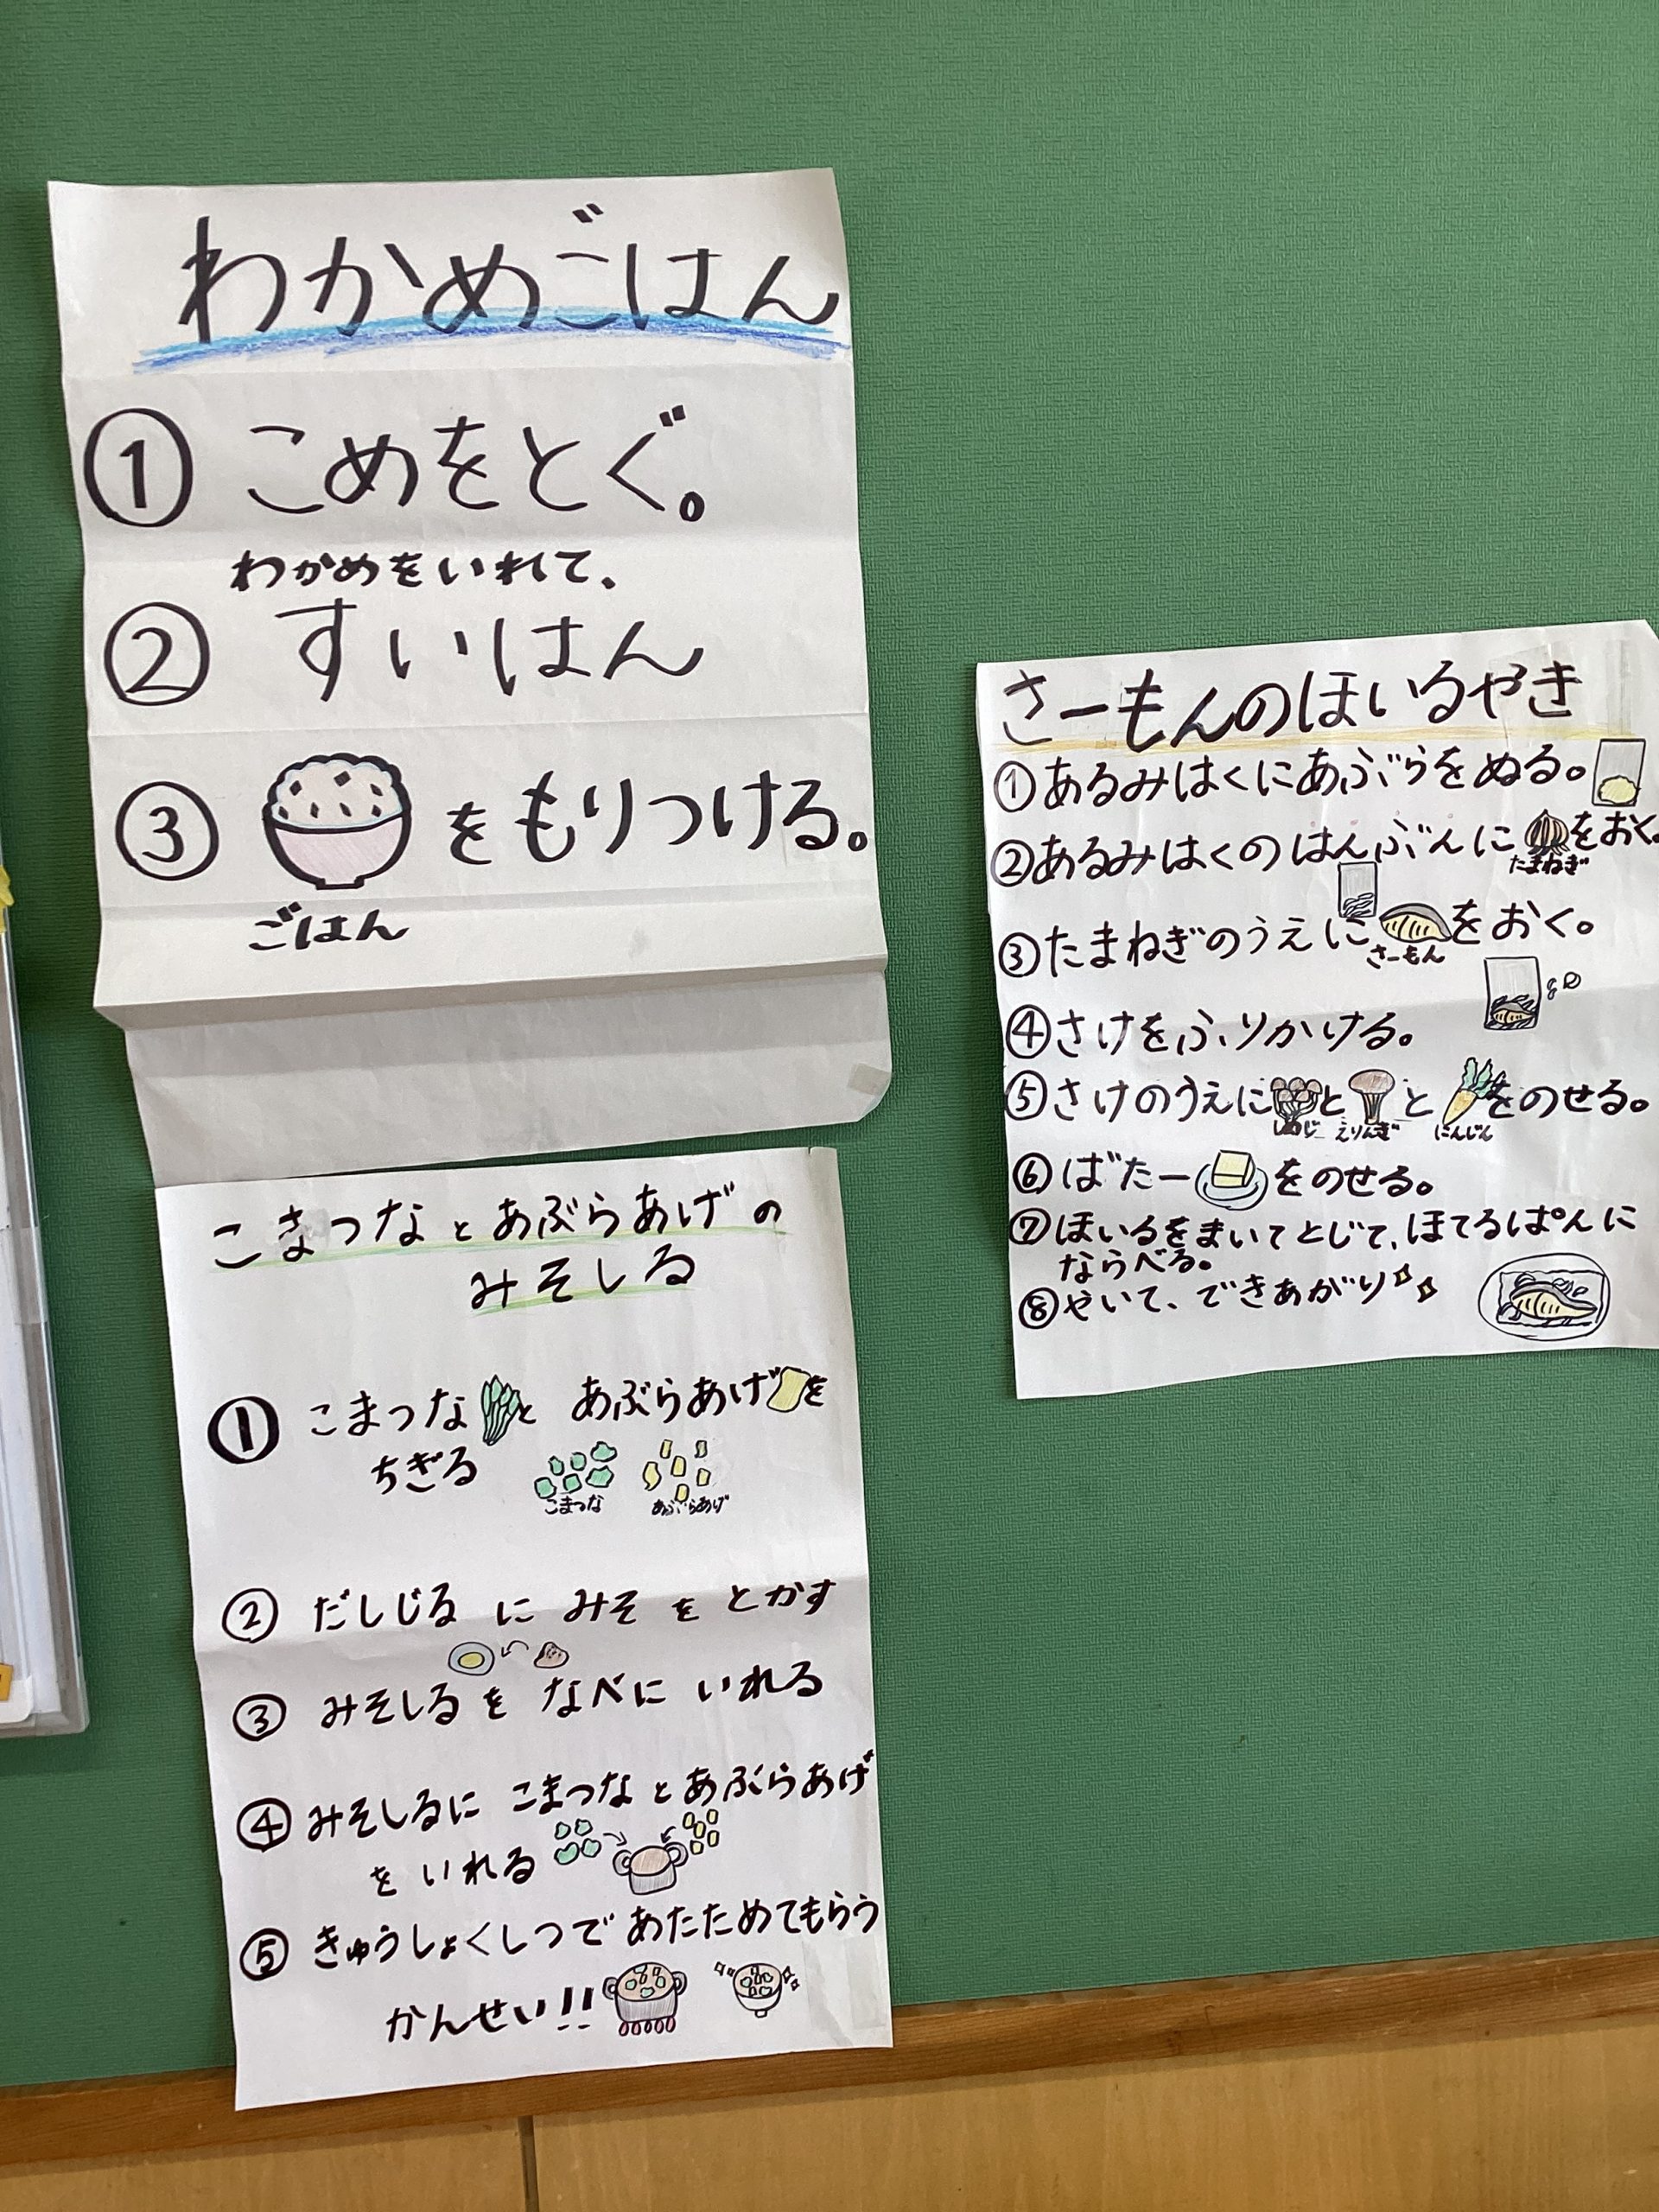 わかめごはん
① こめをとぐ。
わかめをいれて、
② すいはん
③ をもりつける。
ごはん
こまつなとあぶらあげの
みそしる
① こまつなと あぶらあげを
ちぎる
こまつな あぶらあげ
② だしじるにみそをとかす
③ みそしるをなべにいれる
④ みそしるに こまつなとあぶらあげ
をいれる
⑤ きゅうしょくしつであたためてもらう
かんせい!!
さーもんのほいるやき
① あるみはくにあぶらをぬる。
② あるみはくのはんぶんにをおく。
たまねぎ
③ たまねぎのうえにをおく。
さーもん
④ さけをふりかける。
⑤ さけのうえにととをのせる。
しめじ えりんぎ にんじん
⑥ ばたーをのせる。
⑦ ほいるをまいてとじて、ほてるぱんに
ならべる。
⑧ やいて、できあがり